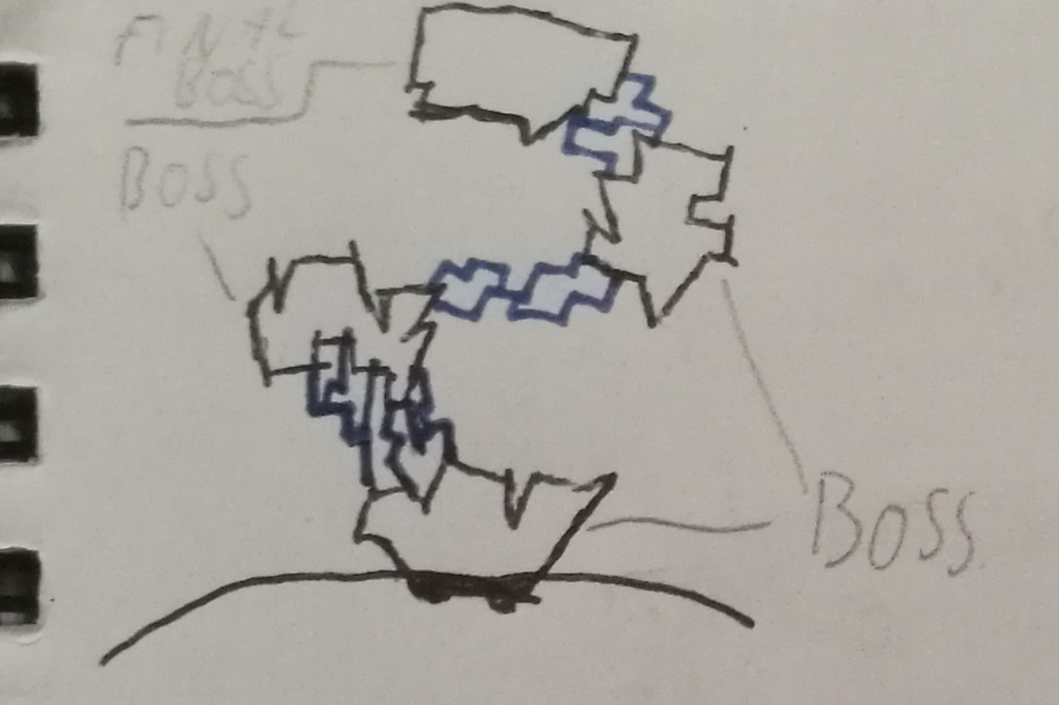 FINAL
BOSS
BOSS
BOSS